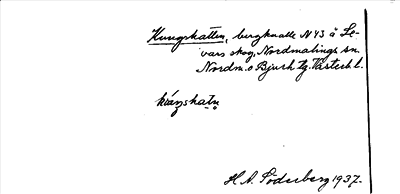 Kungskatten, bergknalle N43 å Le-
vars skog, Nordmalings sn.
Nordm. o Bjurh. tg. Västerb. l.
H. A. Söderberg 1937.